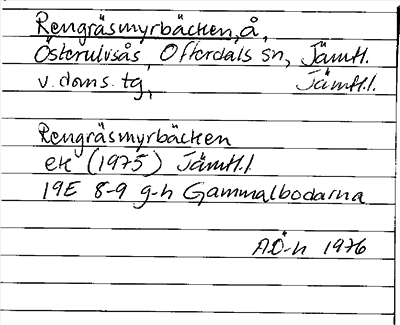 Rengräsmyrbäcken, å,
Österulvsås, Offerdals sn, Jämtl.
v. doms. tg, Jämtl.l.
Rengräsmyrbäcken
ek (1975) Jämtl.l
19E 8-9 g-h Gammalbodarna
A.Ö-n 1976